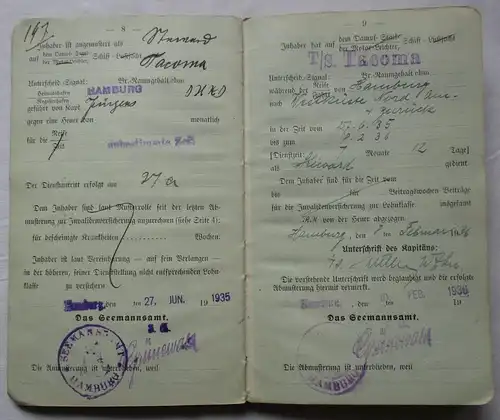 197.
8
Inhaber ist angemustert als Steward
auf dem Dampf- Schiff Tacoma
Unterscheid.-Signal: Br.-Raumgehalt cbm
Heimathafen HAMBURG DHXO
Registerhafen
geführt von Kapt. Jürgens
gegen eine Heuer von monatlich
für die Reise unbestimmte Zeit
Der Dienstantritt erfolgt am 27 cr
Dem Inhaber sind laut Musterrolle seit der letzten Ab-
musterung zur Invalidenversicherung anzurechnen (siehe Seite 4):
für bescheinigte Krankheiten Wochen.
Inhaber ist laut Vereinbarung — auf sein Verlangen —
in der höheren, seiner Dienststellung nicht entsprechenden Lohn-
klasse zu versichern
Hamburg, den 27. JUN. 1935
Das Seemannsamt.
SEEMANNSAMT HAMBURG
Grunewald
Die Anmusterung ist unterblieben, weil
9
Inhaber hat auf
dem Dampf- Schiff
T/S. Tacoma
Unterscheid.-Signal: Br.-Raumgehalt cbm
während der Reise von Hamburg
nach Westküste Nord Am.
+ zurück
in der Zeit vom 27.6.35
bis zum 8.2.36
[Dienstzeit: 7 Monate 12 Tage]
als Steward gedient.
Dem Inhaber sind für die Zeit vom
bis für Beitragswochen Beiträge
für die Invalidenversicherung zur Lohnklasse
RM von der Heuer abgezogen.
Hamburg, den Februar 1936
Unterschrift des Kapitäns:
Die vorstehende Unterschrift wird beglaubigt und die erfolgte
Abmusterung hierauf vermerkt.
Hamburg, den FEB. 1936
Das Seemannsamt.
HAMBURG
Die Abmusterung ist unterblieben, weil